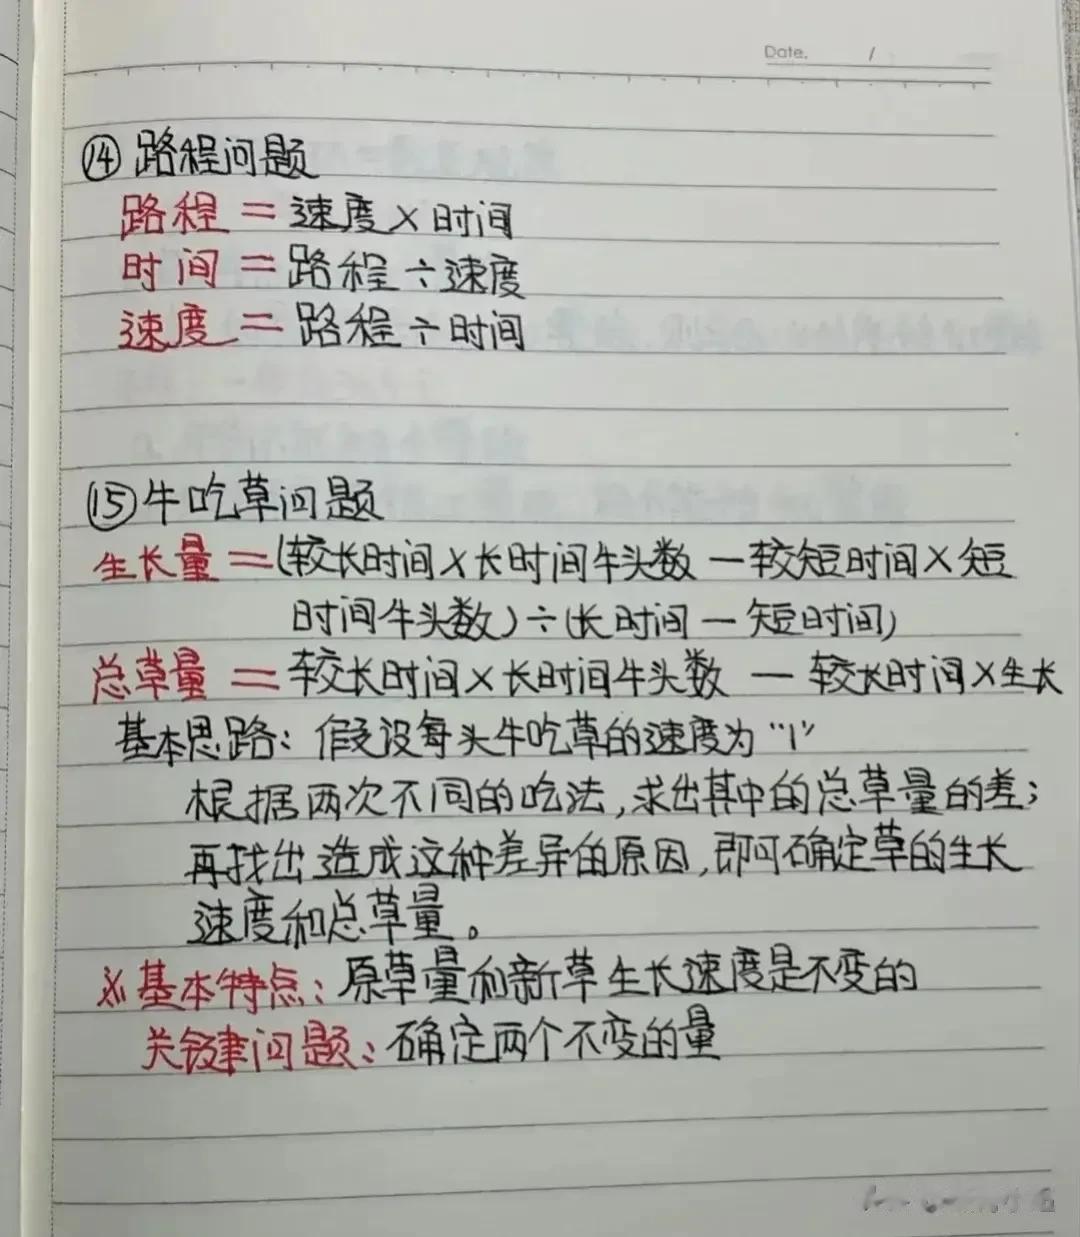 Date. /
⑭路程问题
路程=速度×时间
时间=路程÷速度
速度=路程÷时间
⑮牛吃草问题
生长量=(较长时间×长时间牛头数-较短时间×短
时间牛头数)÷(长时间-短时间)
总草量=较长时间×长时间牛头数-较长时间×生长
基本思路:假设每头牛吃草的速度为"1"
根据两次不同的吃法,求出其中的总草量的差;
再找出造成这种差异的原因,即可确定草的生长
速度和总草量。
※基本特点:原草量和新草生长速度是不变的
关键问题:确定两个不变的量